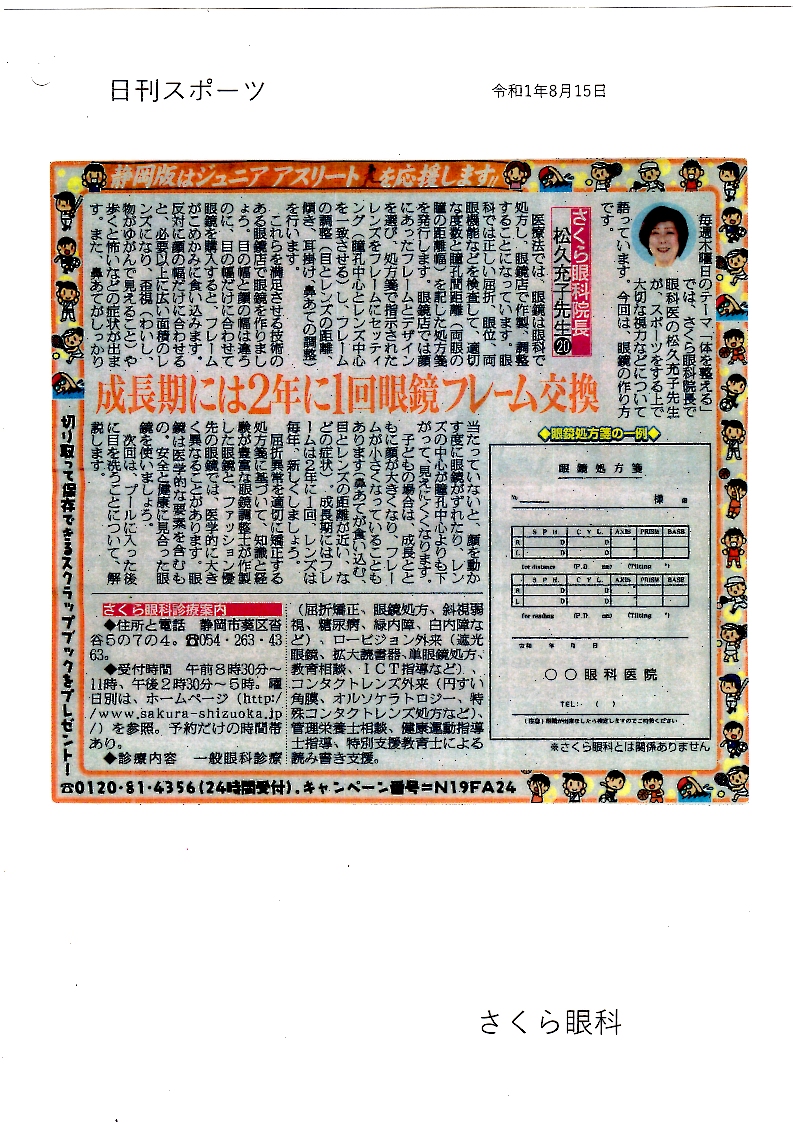 日刊スポーツ
令和1年8月15日
静岡版はジュニア アスリートを応援します!!
毎週木曜日のテーマ「体を整える」
では、さくら眼科院長で
眼科医の松久充子先生
が、スポーツをする上で
大切な視力などについて
語っています。今回は、眼鏡の作り方
です。
さくら眼科院長
松久充子先生⑳
医療法では、眼鏡は眼科で
処方し、眼鏡店で作製、調整
することになっています。眼
科では正しい屈折、眼位、両
眼機能などを検査して、適切
な度数と瞳孔間距離（両眼の
瞳の距離幅）を記した処方箋
を発行します。眼鏡店では顔
にあったフレームとデザイン
を選び、処方箋で指示された
レンズをフレームにセッティ
ング（瞳孔中心とレンズ中心
を一致させる）し、フレーム
の調整（目とレンズの距離、
傾き、耳掛け、鼻あての調整）
を行います。
これらを満足させる技術の
ある眼鏡店で眼鏡を作りまし
ょう。目の幅と顔の幅は違う
のに、目の幅だけに合わせて
眼鏡を購入すると、フレーム
がこめかみに食い込みます。
反対に顔の幅だけに合わせる
と、必要以上に広い面積のレ
ンズになり、歪視（わいし、
物がゆがんで見えること）や
歩くと怖いなどの症状が出ま
す。また、鼻あてがしっかり
成長期には2年に1回眼鏡フレーム交換
当たっていないと、顔を動か
す度に眼鏡がずれたり、レン
ズの中心が瞳孔中心よりも下
がって、見えにくくなります。
子どもの場合は、成長とと
もに顔が大きくなり、フレー
ムが小さくなっていることも
あります（鼻あてが食い込む、
目とレンズの距離が近い、な
どの症状）。成長期にはフレ
ームは2年に1回、レンズは
毎年、新しくしましょう。
屈折異常を適切に矯正する
処方箋に基づいて、知識と経
験が豊富な眼鏡調整士が作製
した眼鏡と、ファッション優
先の眼鏡では、医学的に大き
く異なることがあります。眼
鏡は医学的な要素を含むも
の。安全と健康に見合った眼
鏡を使いましょう。
次回は、プールに入った後
に目を洗うことについて、解
説します。
◆眼鏡処方箋の一例◆
眼鏡処方箋
№
様
SPH. CYL. AXIS PRISM BASE
R. D D °
L. D D °
for distance (P.D. mm) (Tilting °)
SPH. CYL. AXIS PRISM BASE
R. D D °
L. D D °
for reading (P.D. mm) (Tilting °)
令和 年 月 日
〇〇眼科医院
TEL: ( )
(注意)眼鏡が出来ましたら検査しますのでご持参ください
※さくら眼科とは関係ありません
さくら眼科診療案内
◆住所と電話 静岡市葵区沓
谷5の7の4。☎054・263・43
63。
◆受付時間 午前8時30分～
11時、午後2時30分～5時。曜
日別は、ホームページ（http:/
/www.sakura-shizuoka.jp
/）を参照。予約だけの時間帯
あり。
◆診療内容 一般眼科診療
（屈折矯正、眼鏡処方、斜視弱
視、糖尿病、緑内障、白内障な
ど）、ロービジョン外来（遮光
眼鏡、拡大読書器、単眼鏡処方、
教育相談、ICT指導など）、
コンタクトレンズ外来（円すい
角膜、オルソケラトロジー、特
殊コンタクトレンズ処方など）、
管理栄養士相談、健康運動指導
士指導、特別支援教育士による
読み書き支援。
切り取って保存できるスクラップブックをプレゼント!
☎0120・81・4356(24時間受付)。キャンペーン番号=N19FA24
さくら眼科